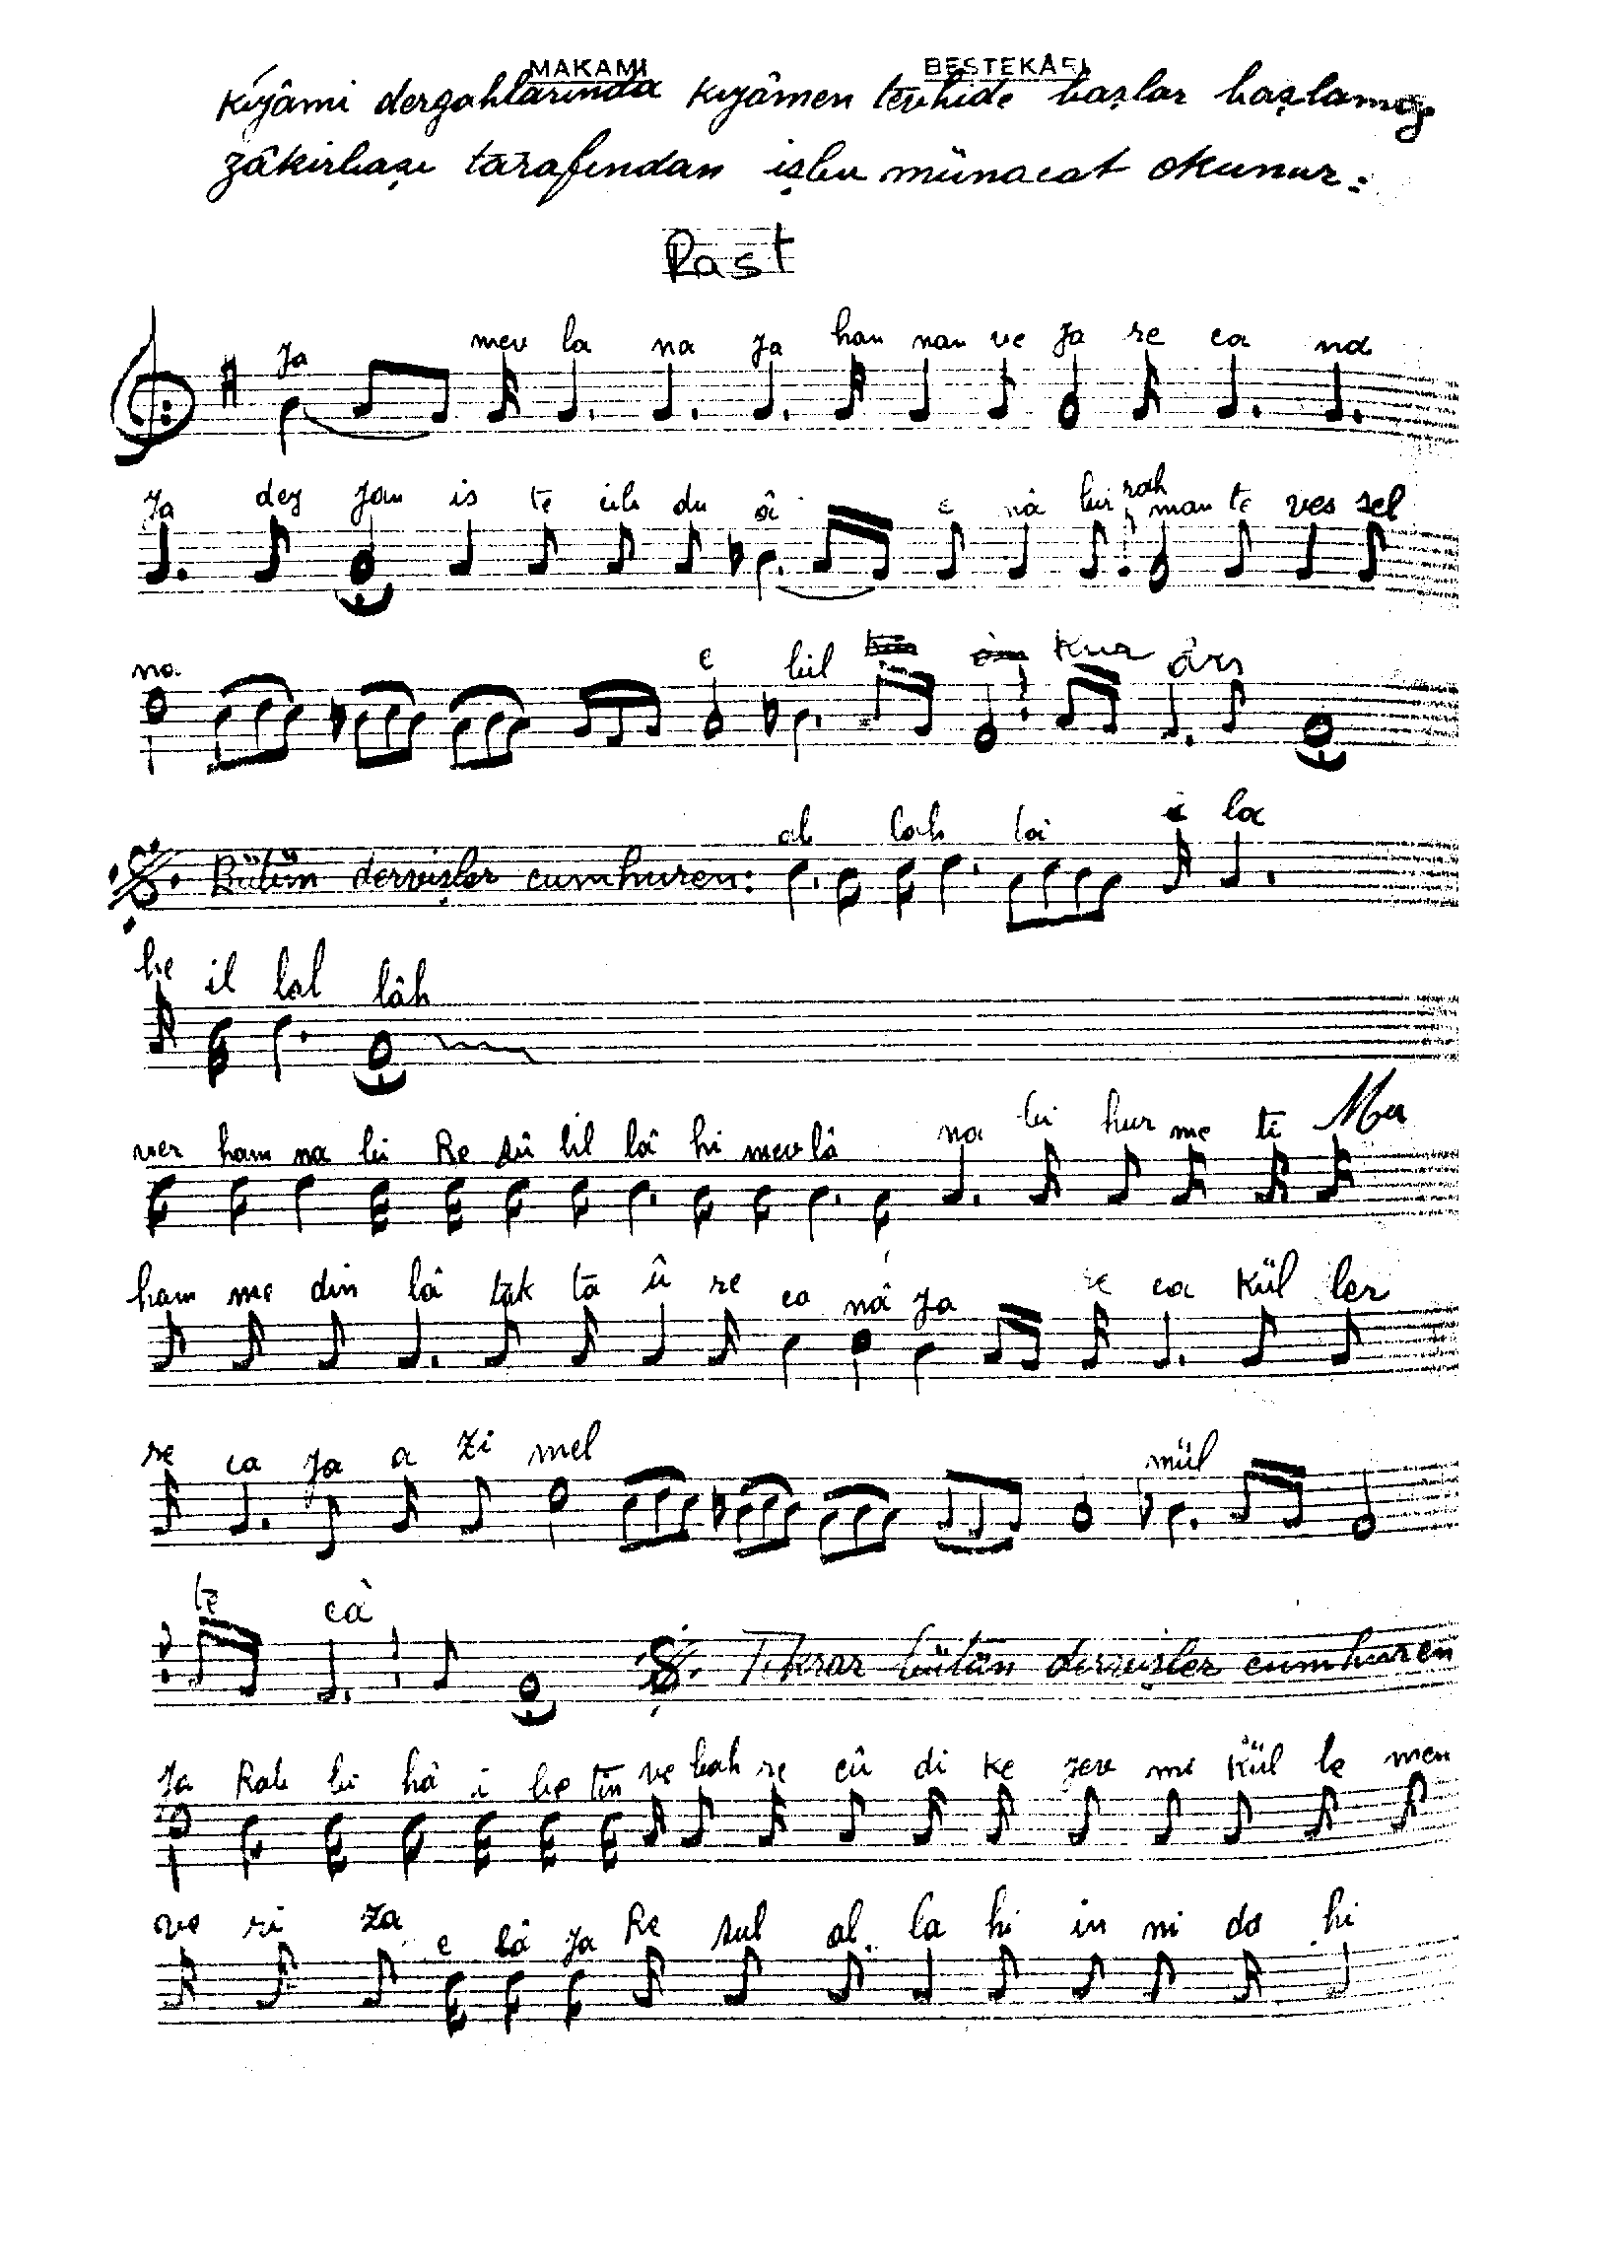 MAKAMI BESTEKÂRI
Kıyâmi dergahlarında kıyâmen tevhide başlar başlamaz
zâkirbaşı tarafından işbu münacat okunur:
Rast
Ja mev la na ja han nan ve ja re ca na
Ja dey jan is te cib du â e nâ bir rah man te ves sel
na e bil Kur ân
Bütün dervişler cumhuren: al lah lâ i la
he il lal lâh
ver ham na bi Re sû lil lâ hi mev lâ na bi hur me ti Mu
ham me din lâ tak ta û re ca nâ ja re ca kül ler
re ca ja a zi mel mül
te câ Tekrar bütün dervişler cumhuren
Ja Rab bi hâ i be tin ve bah re cû di ke jer mi kül le men
ve ri za e lâ ja Re sul al la hi in ni da hi